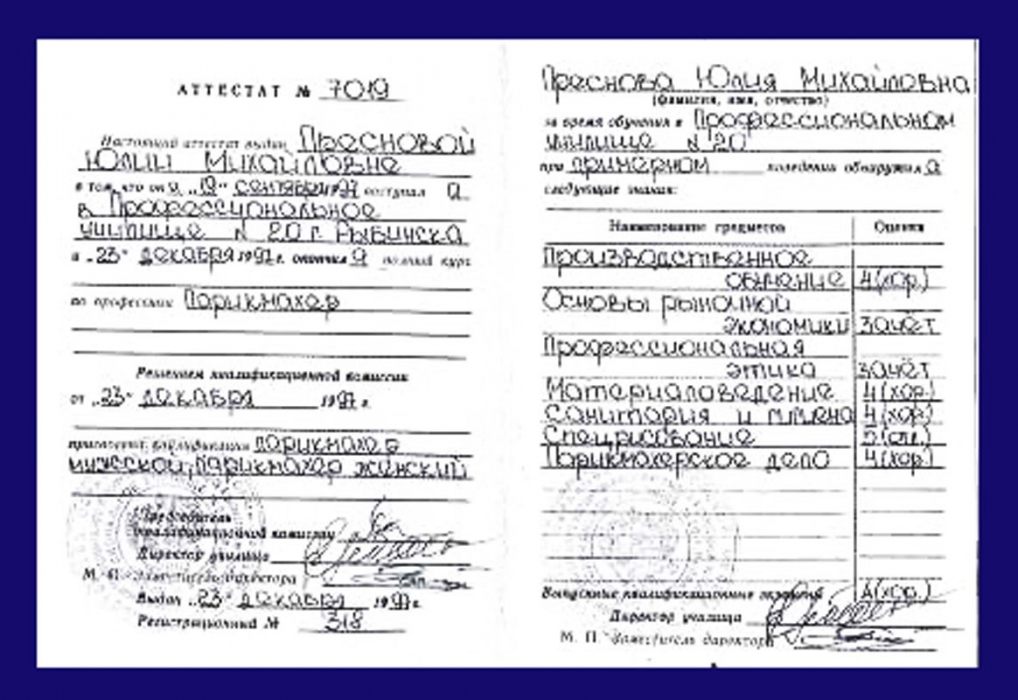 АТТЕСТАТ № 7019
Настоящий аттестат выдан Пресновой
Юлии Михайловне
в том, что он а „19“ сентября 1997 поступил а
в Профессиональное
училище N 20 г. Рыбинска
и „23“ декабря 1997 г. окончил а полный курс
по профессии Парикмахер
Решением квалификационной комиссии
от „23“ декабря 1997 г.
присвоена квалификация парикмахер
мужской, парикмахер женский
Председатель
квалификационной комиссии
Директор училища
М. П. Заместитель директора
Выдан „23“ декабря 1997 г.
Регистрационный № 318
Преснова Юлия Михайловна
(фамилия, имя, отчество)
за время обучения в Профессиональном
училище N 20
при примерном поведении обнаружил а
следующие знания:
Наименование предметов Оценки
Производственное
обучение 4(хор.)
Основы рыночной
экономики зачёт
Профессиональная
этика зачёт
Материаловедение 4(хор.)
Санитария и гигиена 4(хор.)
Спецрисование 5(отл.)
Парикмахерское дело 4(хор.)
Выпускные квалификационные экзамены 4(хор.)
Директор училища
М. П. Заместитель директора